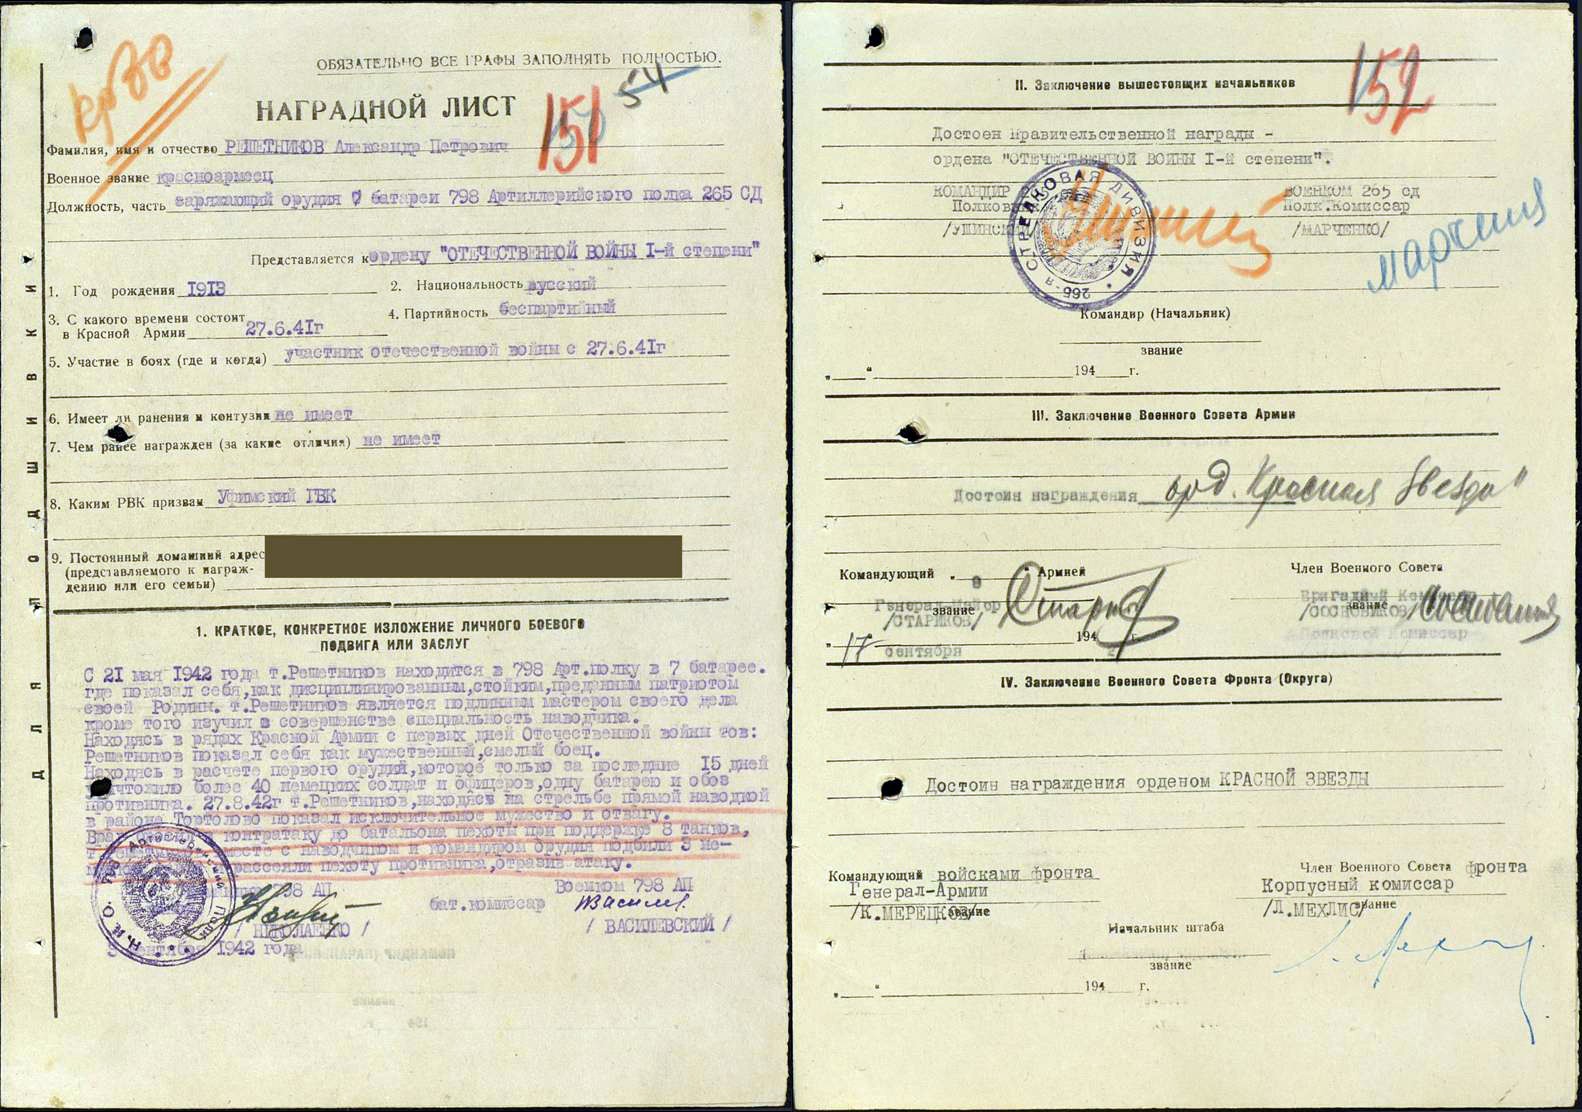 кр зв
ОБЯЗАТЕЛЬНО ВСЕ ГРАФЫ ЗАПОЛНЯТЬ ПОЛНОСТЬЮ.
54
НАГРАДНОЙ ЛИСТ
151
Фамилия, имя и отчество РЕШЕТНИКОВ Александр Петрович
Военное звание красноармеец
Должность, часть заряжающий орудия 7 батареи 798 Артиллерийского полка 265 СД
Представляется к ордену "ОТЕЧЕСТВЕННОЙ ВОЙНЫ I-й степени"
1. Год рождения 1913
2. Национальность русский
3. С какого времени состоит
в Красной Армии 27.6.41г
4. Партийность беспартийный
5. Участие в боях (где и когда) участник отечественной войны с 27.6.41г
6. Имеет ли ранения и контузии не имеет
7. Чем ранее награжден (за какие отличия) не имеет
8. Каким РВК призван Уфимский ГВК
9. Постоянный домашний адрес
(представляемого к награж-
дению или его семьи)
ДЛЯ ПОДШИВКИ
1. КРАТКОЕ, КОНКРЕТНОЕ ИЗЛОЖЕНИЕ ЛИЧНОГО БОЕВОГО
ПОДВИГА ИЛИ ЗАСЛУГ
С 21 мая 1942 года т.Решетников находится в 798 Арт.полку в 7 батарее.
где показал себя,как дисциплинированным,стойким,преданным патриотом
своей Родины. т.Решетников является подлинным мастером своего дела
кроме того изучил в совершенстве специальность наводчика.
Находясь в рядах Красной Армии с первых дней Отечественной войны тов:
Решетников показал себя как мужественный,смелый боец.
Находясь в расчете первого орудия,которое только за последние 15 дней
уничтожило более 40 немецких солдат и офицеров,одну батарею и обоз
противника. 27.8.42г т.Решетников,находясь на стрельбе прямой наводкой
в района Тортолово показал исключительное мужество и отвагу.
Враг контратаку до батальона пехоты при поддержке 8 танков,
вместе с наводчиком и командиром орудия подбили 3 не-
рассеяли пехоту противника,отразив атаку.
798 АП
Военком 798 АП
бат.комиссар
/ НИКОЛАЕНКО /
/ ВАСИЛЕВСКИЙ /
сентября 1942 года
152
II. Заключение вышестоящих начальников
Достоен Правительственной награды -
ордена "ОТЕЧЕСТВЕННОЙ ВОЙНЫ I-й степени".
КОМАНДИР
Полковник
/УШИНСКИЙ
ВОЕНКОМ 265 сд
Полк.Комиссар
/МАРЧЕНКО/
265-я СТРЕЛКОВАЯ ДИВИЗИЯ
Командир (Начальник)
звание
„ “ 194 г.
III. Заключение Военного Совета Армии
Достоин награждения орд. Красная Звезда"
Командующий „ 8 “ Армией
Член Военного Совета
Генерал Майор
звание
/СТАРИКОВ/
Бригадный Комиссар
звание
/СОСНОВИКОВ/
„ 17 сентября 194 2 г.
Полковой Комиссар
IV. Заключение Военного Совета Фронта (Округа)
Достоин награждения орденом КРАСНОЙ ЗВЕЗДЫ
Командующий войсками фронта
Генерал-Армии
/К.МЕРЕЦКОВ/
звание
Член Военного Совета фронта
Корпусный комиссар
/Л.МЕХЛИС/
звание
Начальник штаба
звание
„ “ 194 г.